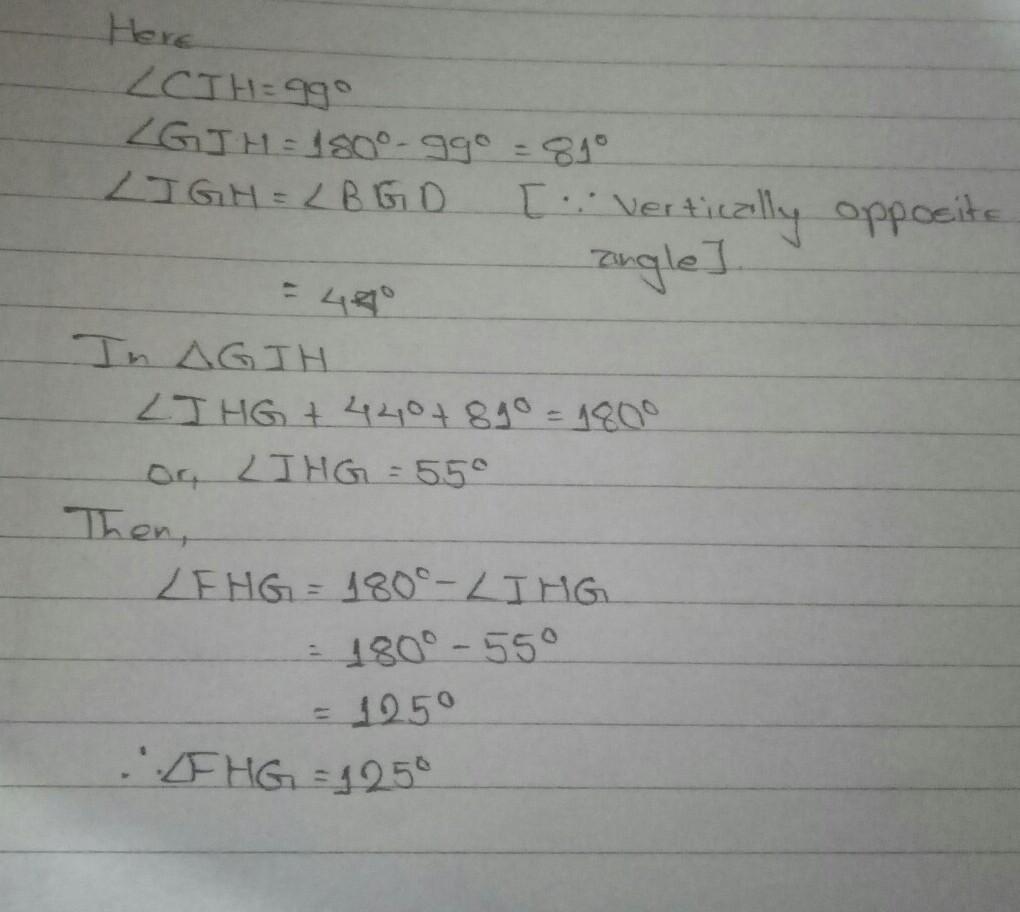 Here
∠CIH = 99°
∠GIH = 180° - 99° = 81°
∠IGH = ∠BGD [∵ vertically opposite
angle]
= 44°
In △GIH
∠IHG + 44° + 81° = 180°
or, ∠IHG = 55°
Then,
∠FHG = 180° - ∠IHG
= 180° - 55°
= 125°
∴ ∠FHG = 125°